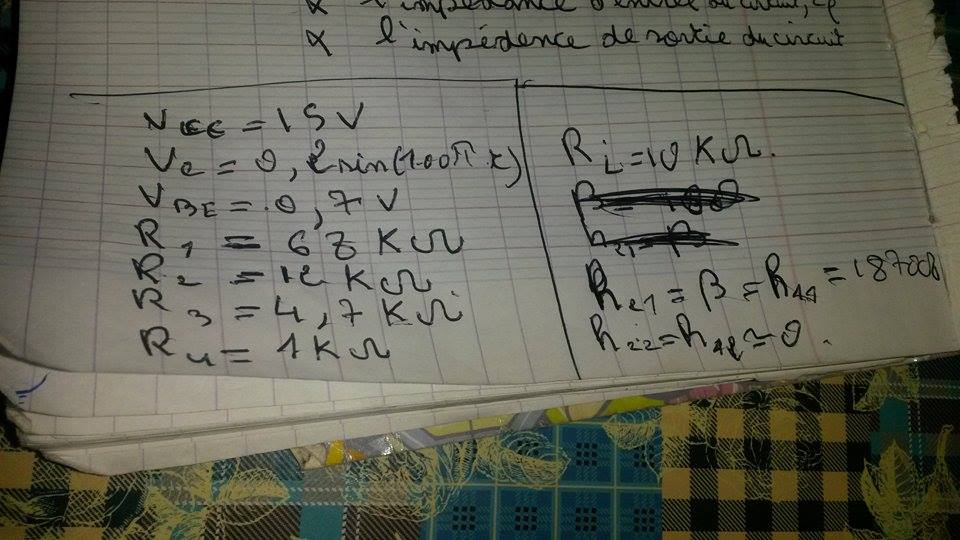 ∝ l'impédance d'entrée du circuit,
∝ l'impédence de sortie du circuit
VCC = 15 V
Ve = 0,2 sin(100π t)
VBE = 0,7 V
R1 = 68 KΩ
R2 = 12 KΩ
R3 = 4,7 KΩ
R4 = 1 KΩ
RL = 10 KΩ.
h21 = β = h11 =
h22 = h12 ≃ 0.